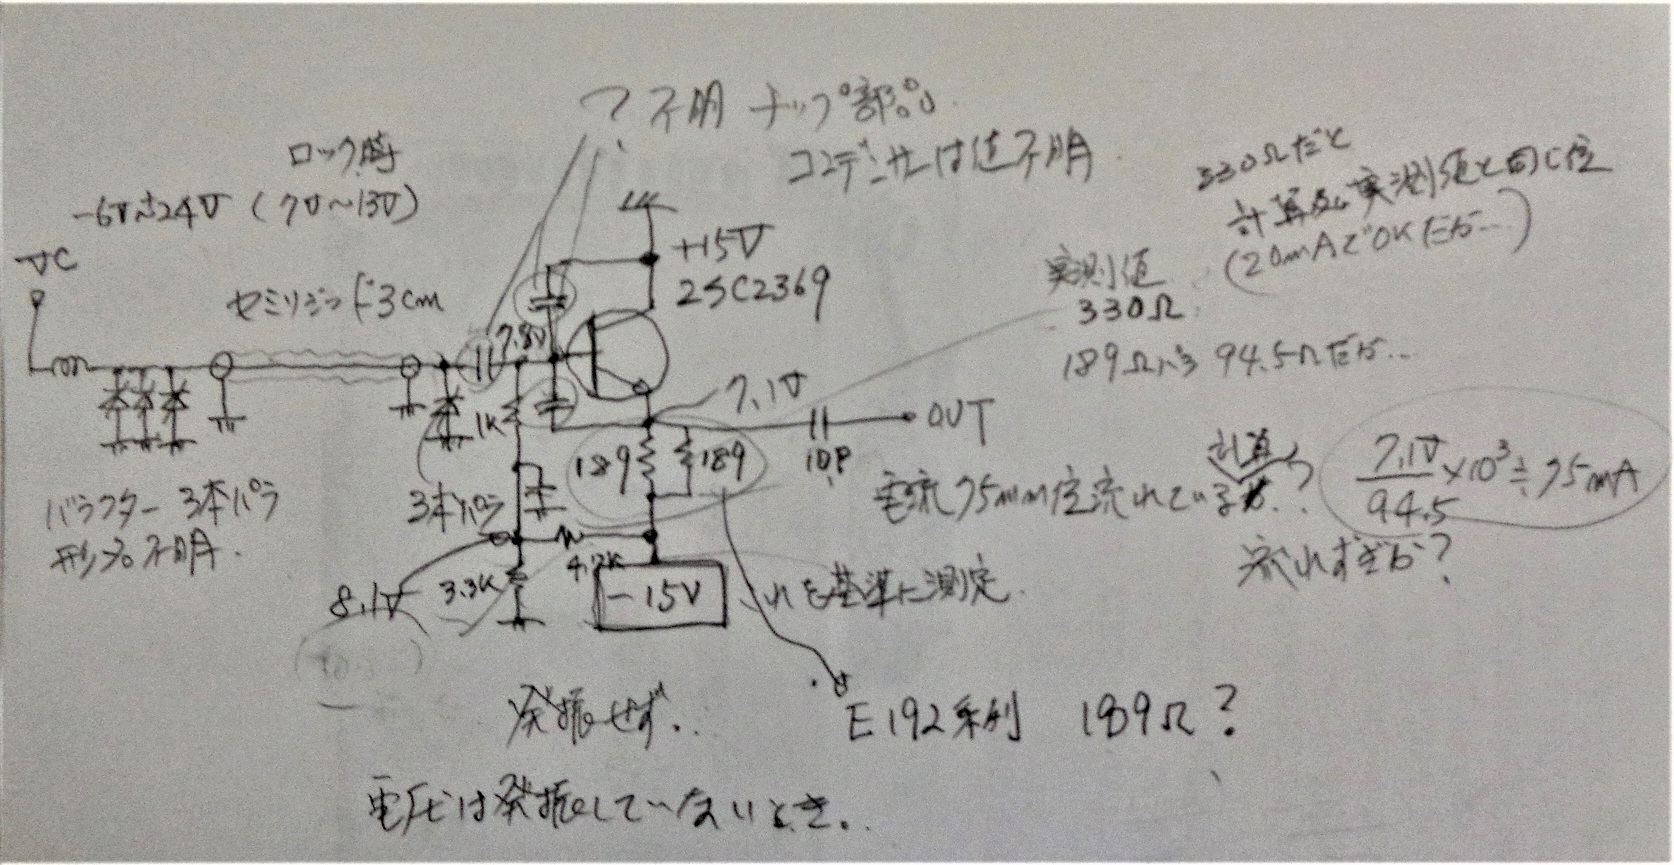 ?不明 チップ部品
コンデンサーは値不明
ロック時
-6V~24V (7V~13V)
VC
セミリジッド3cm
+15V
2SC2369
330Ωだと
計算及び実測値と同じ位
(20mAでOKだが…)
実測値
330Ω
189Ωパラ 94.5Ωだが…
7.8V
7.1V
OUT
10P
1K
189
189
3本パラ
4.7K
3.3K
8.1V
-15V
これを基準に測定
バラクター 3本パラ
形名不明.
計算
電流75mm位流れている?
7.1V/94.5 ×10³≒75mA
流れすぎか?
発振せず..
E192系列 189Ω?
電圧は発振していないとき..